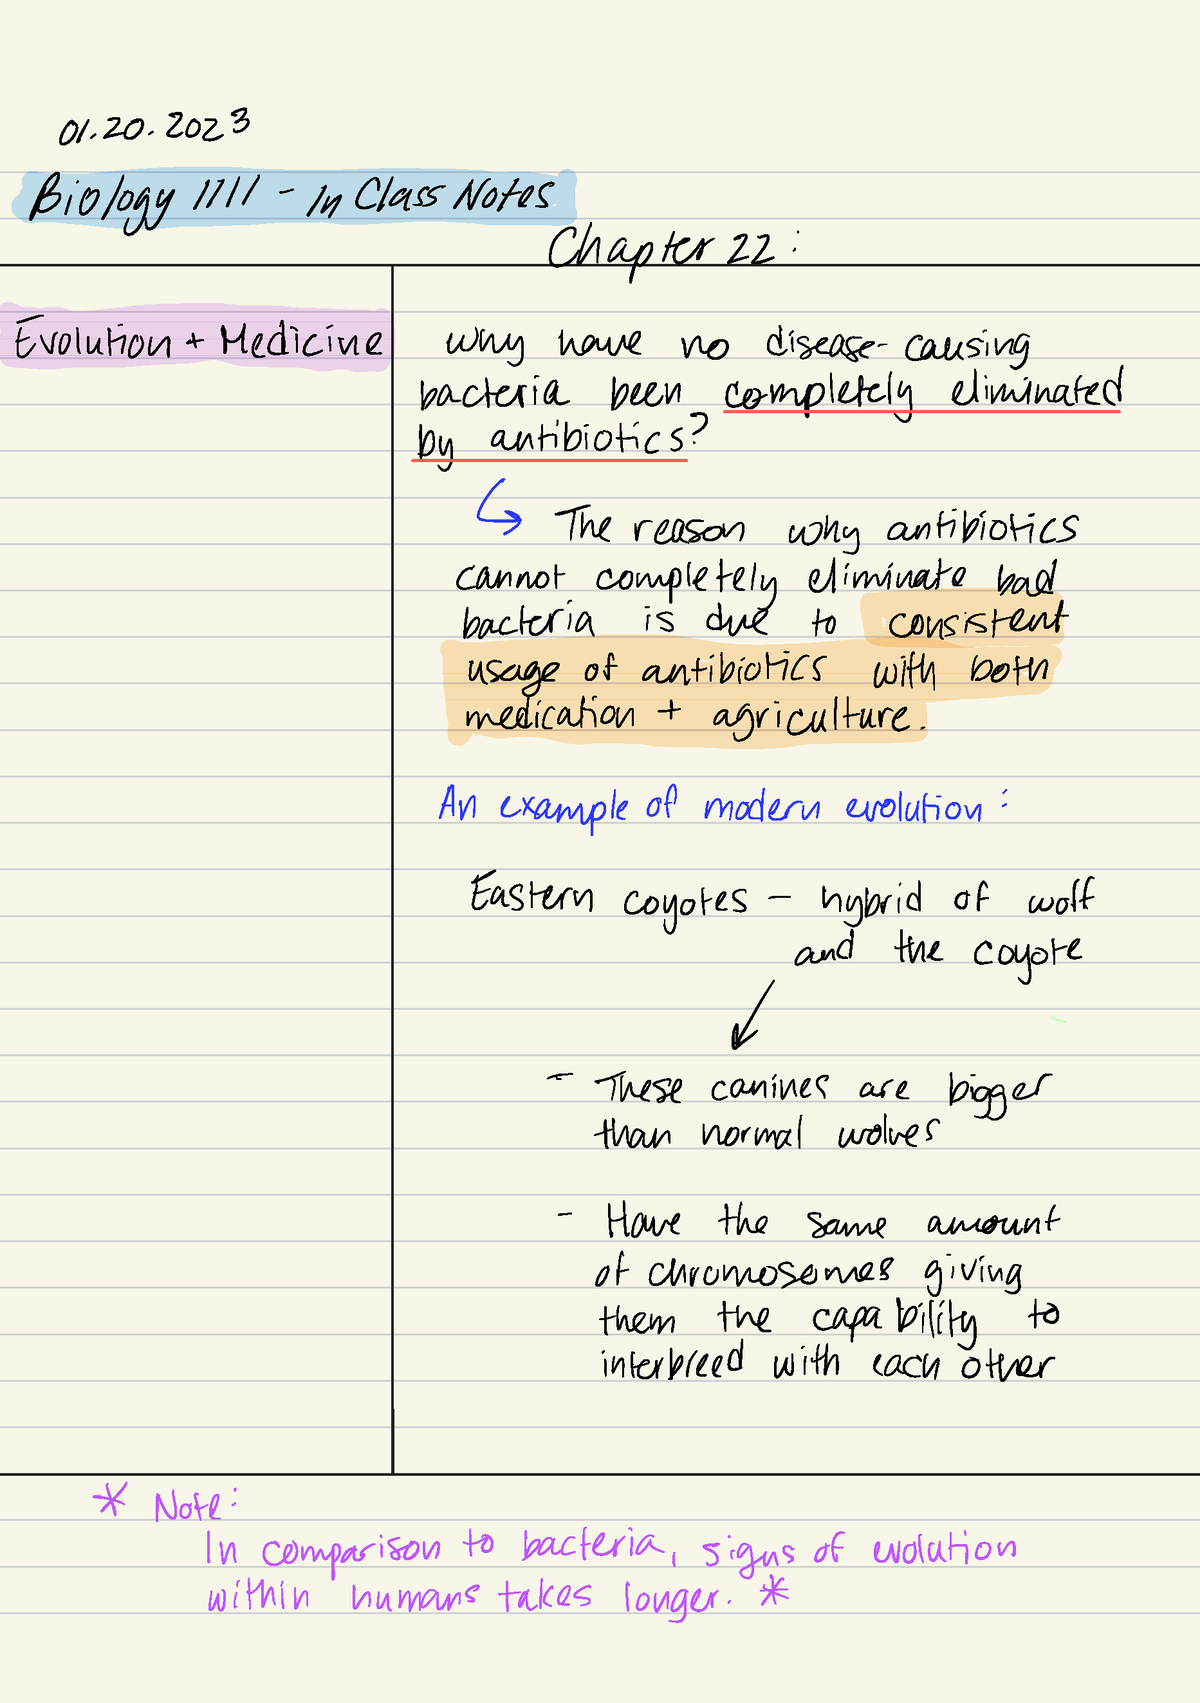 01.20.2023
Biology 1111 - In Class Notes
Chapter 22:
Evolution + Medicine
Why have no disease-causing
bacteria been completely eliminated
by antibiotics?
The reason why antibiotics
cannot completely eliminate bad
bacteria is due to consistent
usage of antibiotics with both
medication + agriculture.
An example of modern evolution:
Eastern coyotes - hybrid of wolf
and the coyote
- These canines are bigger
than normal wolves
- Have the same amount
of chromosomes giving
them the capability to
interbreed with each other
* Note:
In comparison to bacteria, signs of evolution
within humans takes longer. *